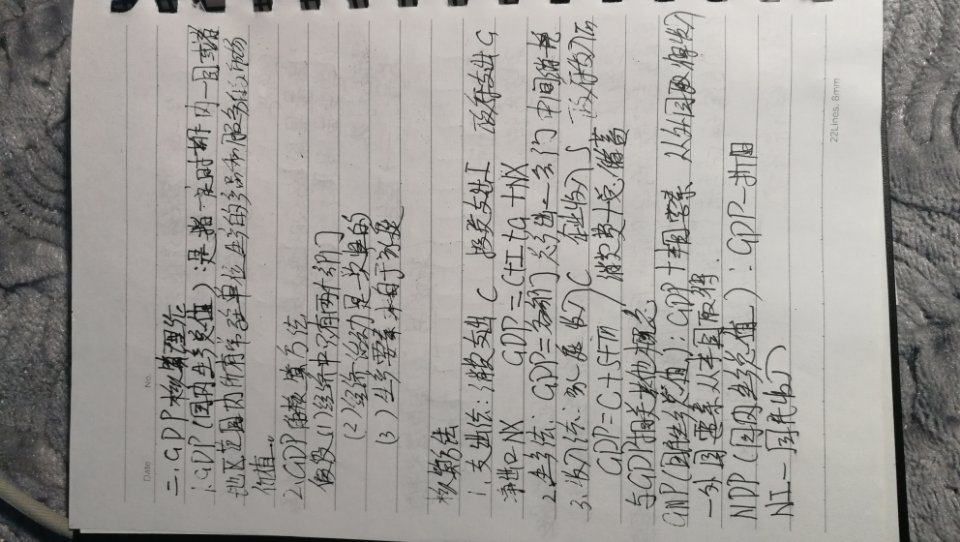 Date No.
二.GDP核算理论
1.GDP(国内生产总值):是指一定时期内一国或者
地区范围内所有常住单位生产的产品和服务的市场
价值。
2.GDP的核算方法
假设(1)经济中只有两个部门
(2)经济活动是一次性的
(3)生产要素来自于家庭
核算方法
1.支出法:消费支出C 投资支出I 政府支出G
净出口NX GDP=C+I+G+NX
2.生产法:GDP=各部门总产出-各部门中间消耗
3.收入法:家庭收入C 企业收入S 政府收入
GDP=C+S+T 消费 储蓄
与GDP相关其他概念
GNP(国民生产总值):GDP+本国要素从外国取得收入
-外国要素从本国取得
NDP(国内生产总值):GDP-折旧
NI-国民收入
22Lines, 8mm